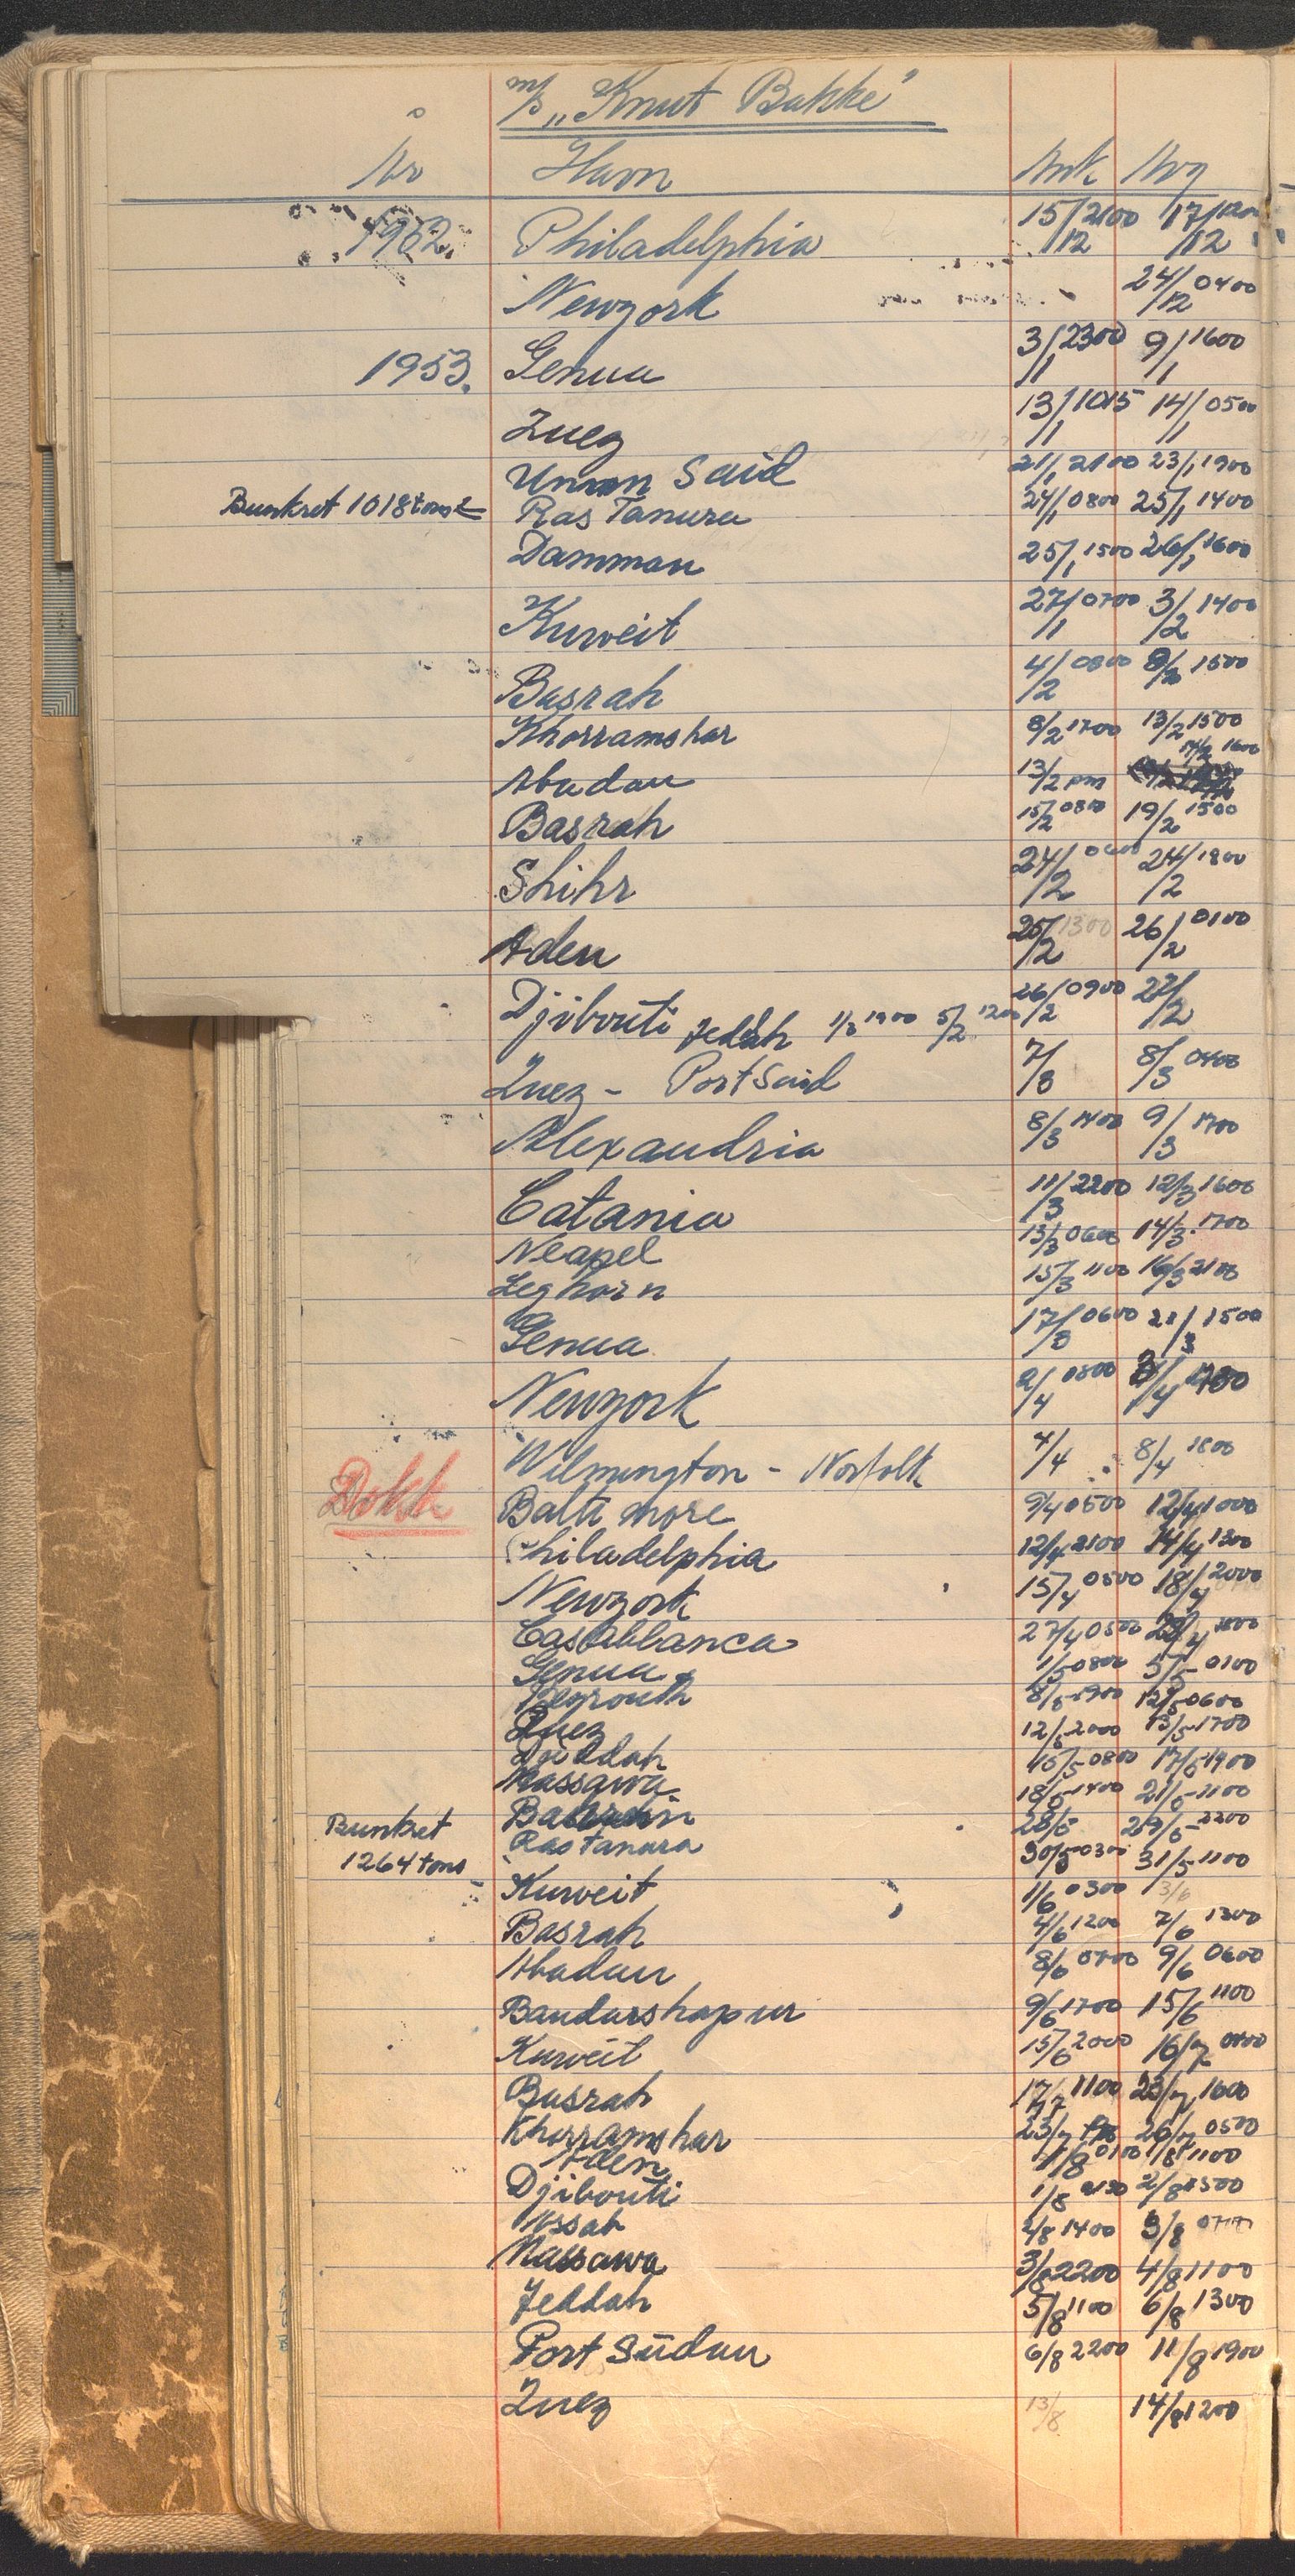 m/s „Knut Bakke"
År Havn Ank Avg
1952. Philadelphia 15/12 2100 17/12
Newyork 24/12 0400
1953. Genua 3/1 2300 9/1 1600
Zuez 13/1 1015 14/1 0500
Umm Said 21/1 2100 23/1 1900
Bunkret 1018 tons Ras Tanura 24/1 0800 25/1 1400
Damman 25/1 1500 26/1 1600
Kuweit 27/1 0700 3/2 1400
Basrah 4/2 0800 8/2 1500
Khorramshar 8/2 1700 13/2 1500
Abadan 13/2 pm 14/2 1600
Basrah 15/2 0800 19/2 1500
Shihr 24/2 0600 24/2 1800
Aden 25/2 1300 26/2 0100
Djibouti 26/2 0900 27/2
Jeddah 1/3 1900 5/2 1200
Zuez - Port Said 7/3 8/3 0400
Alexandria 8/3 1400 9/3 1700
Catania 11/3 2200 12/3 1600
Neapel 13/3 0600 14/3 1700
Leghorn 15/3 1100 16/3 2100
Genua 17/3 0600 21/3 1500
Newyork 2/4 0800 3/4 1700
Wilmington - Norfolk 4/4 8/4 1800
Dokk Baltimore 9/4 0500 12/4 1000
Philadelphia 12/4 2100 14/4 1300
Newyork 15/4 0500 18/4 2000
Casablanca 27/4 0500 1800
Genua 1/5 0800 5/5 0100
Beyrouth 8/5 1900 12/5 0600
Zuez 12/5 2000 13/5 1700
Djeddah 16/5 0800 17/5 1900
Massawa 18/5 1400 21/5 1100
Bunkret Bahrein 28/5 29/5 2200
1264 tons Ras tanura 30/5 0300 31/5 1100
Kuweit 1/6 0300 3/6
Basrah 4/6 1200 7/6 1300
Abadan 8/6 0700 9/6 0600
Bandarshapur 9/6 1700 15/6 1100
Kuweit 15/6 2000 16/7 0400
Basrah 17/7 1100 23/7 1600
Khorramshar 23/7 26/7 0500
Aden 1/8 0100 1/8 1100
Djibouti 1/8 2/8
Assab 2/8 1400 3/8
Massawa 3/8 2200 4/8 1100
Jeddah 5/8 1100 6/8 1300
Port Sūdan 6/8 2200 11/8 1900
Zuez 13/8 14/8 1200